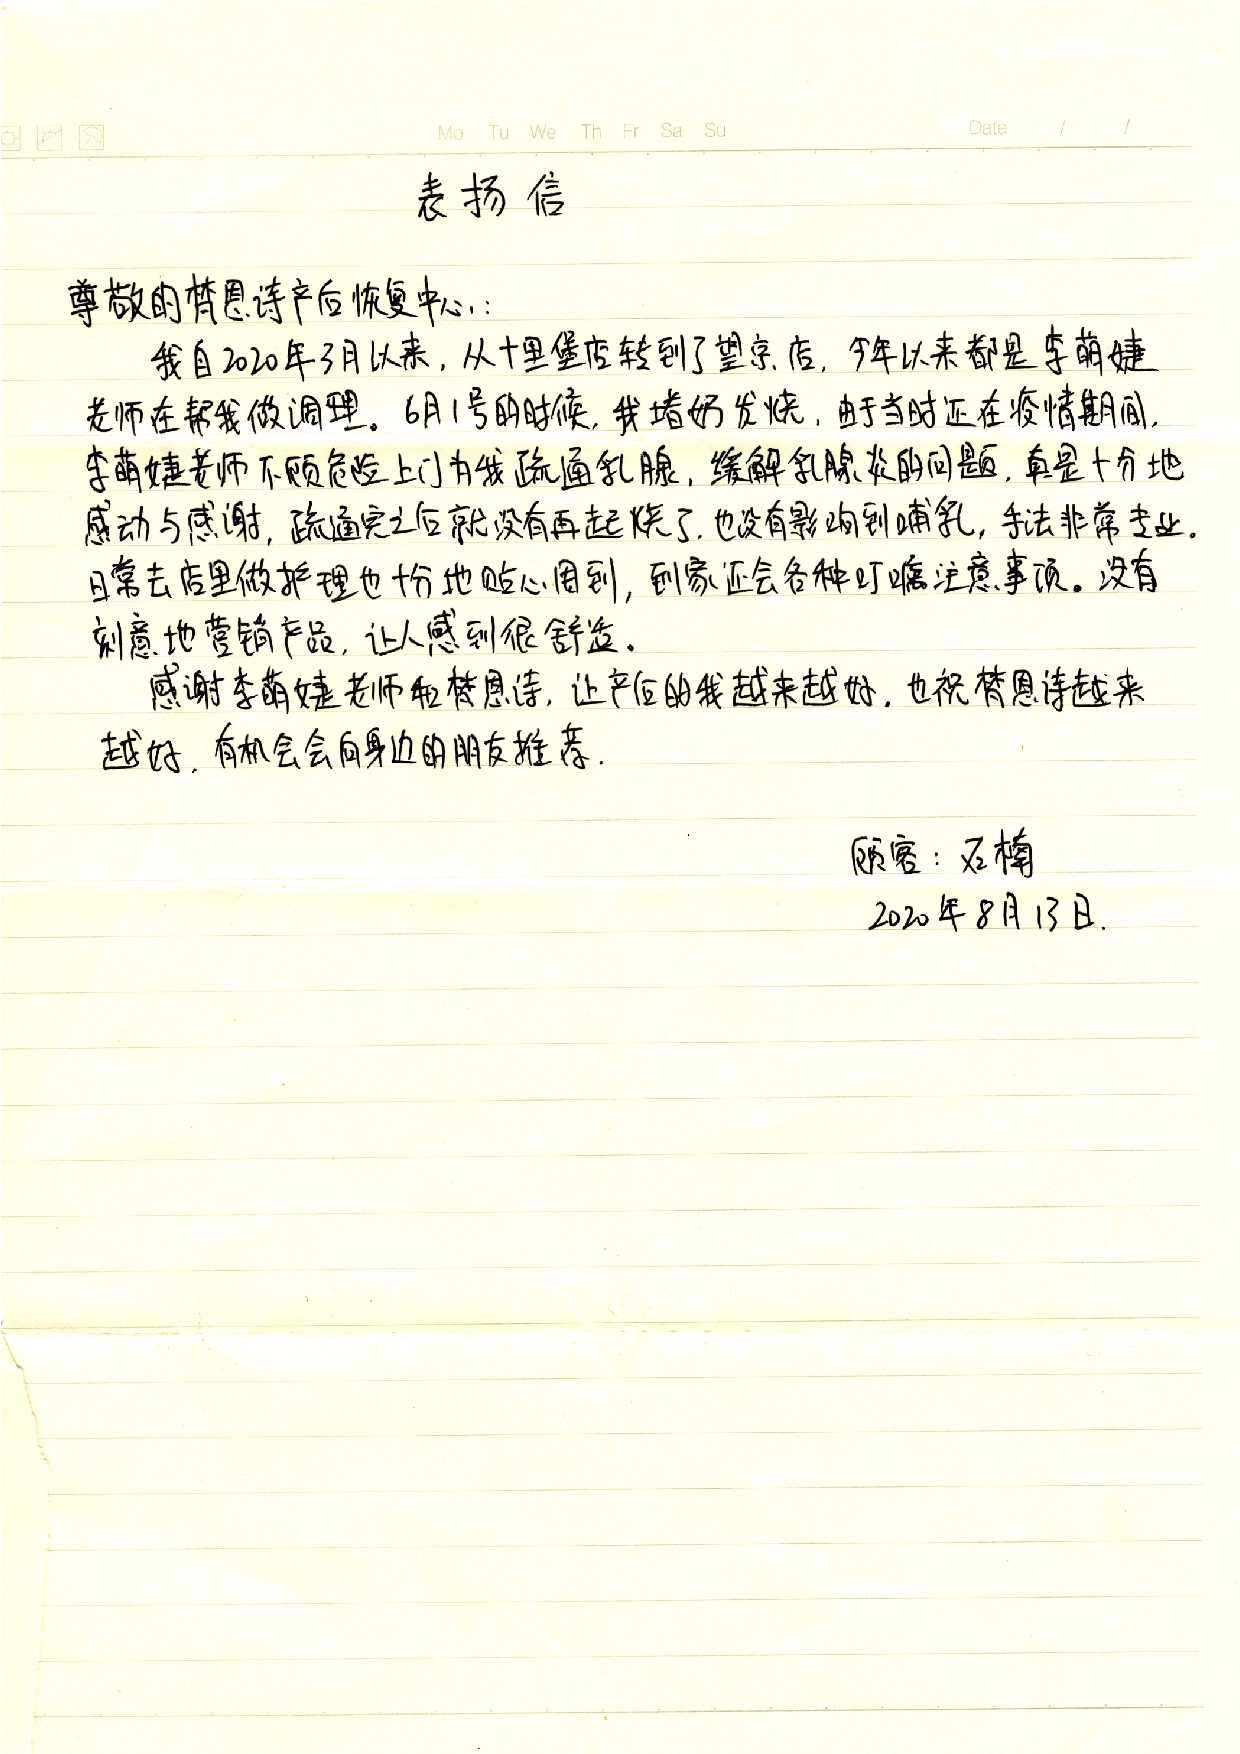 Mo Tu We Th Fr Sa Su Date / /
表扬信
尊敬的梵恩诗产后恢复中心：
我自2020年3月以来，从十里堡店转到了望京店，今年以来都是李萌婕
老师在帮我做调理。6月1号的时候，我堵奶发烧，由于当时正在疫情期间，
李萌婕老师不顾危险上门为我疏通乳腺，缓解乳腺炎的问题，真是十分地
感动与感谢，疏通完之后就没有再起烧了，也没有影响到哺乳，手法非常专业。
日常去店里做护理也十分地贴心周到，到家还会各种叮嘱注意事项。没有
刻意地营销产品，让人感到很舒适。
感谢李萌婕老师和梵恩诗，让产后的我越来越好，也祝梵恩诗越来
越好，有机会会向身边的朋友推荐.
顾客：石楠
2020年8月13日.